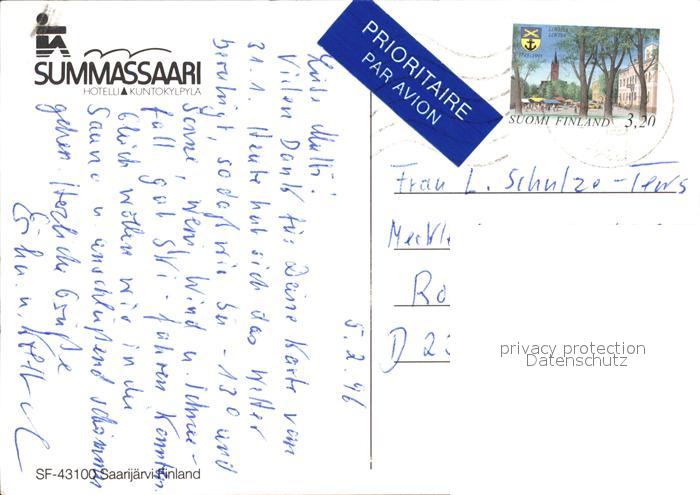 SUMMASSAARI
HOTELLI KUNTOKYLPYLÄ
PRIORITAIRE
PAR AVION
LOVIISA
LOVISA
1745-1995
SUOMI FINLAND 3,20
5.2.96
Vielen Dank für Deine Karte vom
31.1. Heute hat sich das Wetter
beruhigt, sodaß wir bei -13° und
Sonne, wenig Wind u. Schnee-
fall gut Ski-fahren konnten.
Gleich wollen wir in die
Sauna u. anschließend schwimmen
gehen. Herzliche Grüße
SF-43100 Saarijärvi Finland
Frau L. Schulze-Tews
Meckle
Ro
D 22
privacy protection
Datenschutz